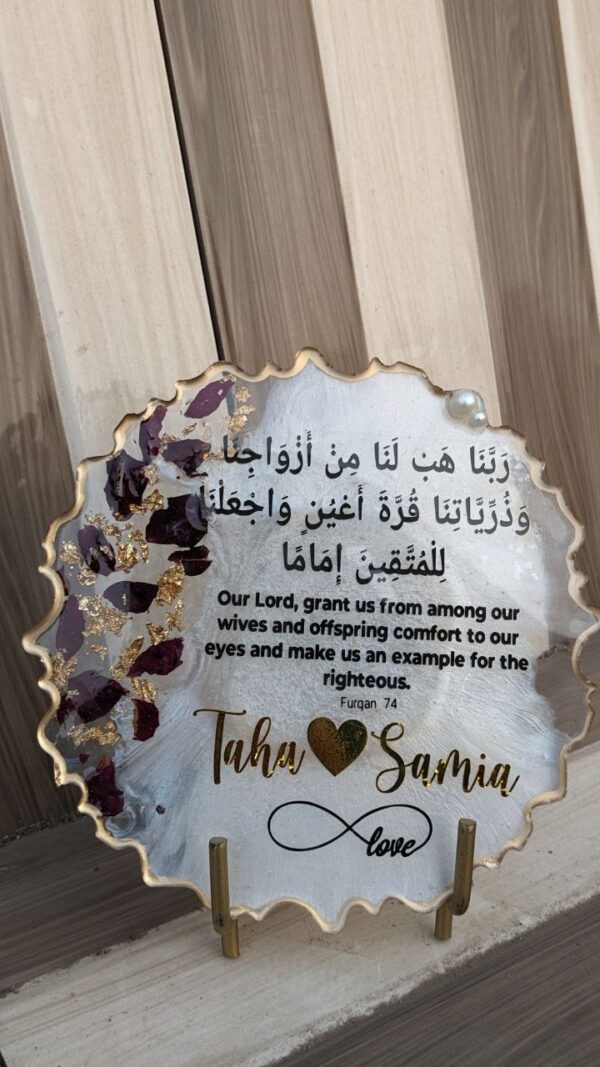 رَبَّنَا هَبْ لَنَا مِنْ أَزْوَاجِنَا
وَذُرِّيَّاتِنَا قُرَّةَ أَعْيُنٍ وَاجْعَلْنَا
لِلْمُتَّقِينَ إِمَامًا
Our Lord, grant us from among our
wives and offspring comfort to our
eyes and make us an example for the
righteous.
Furqan 74
Taha Samia
love